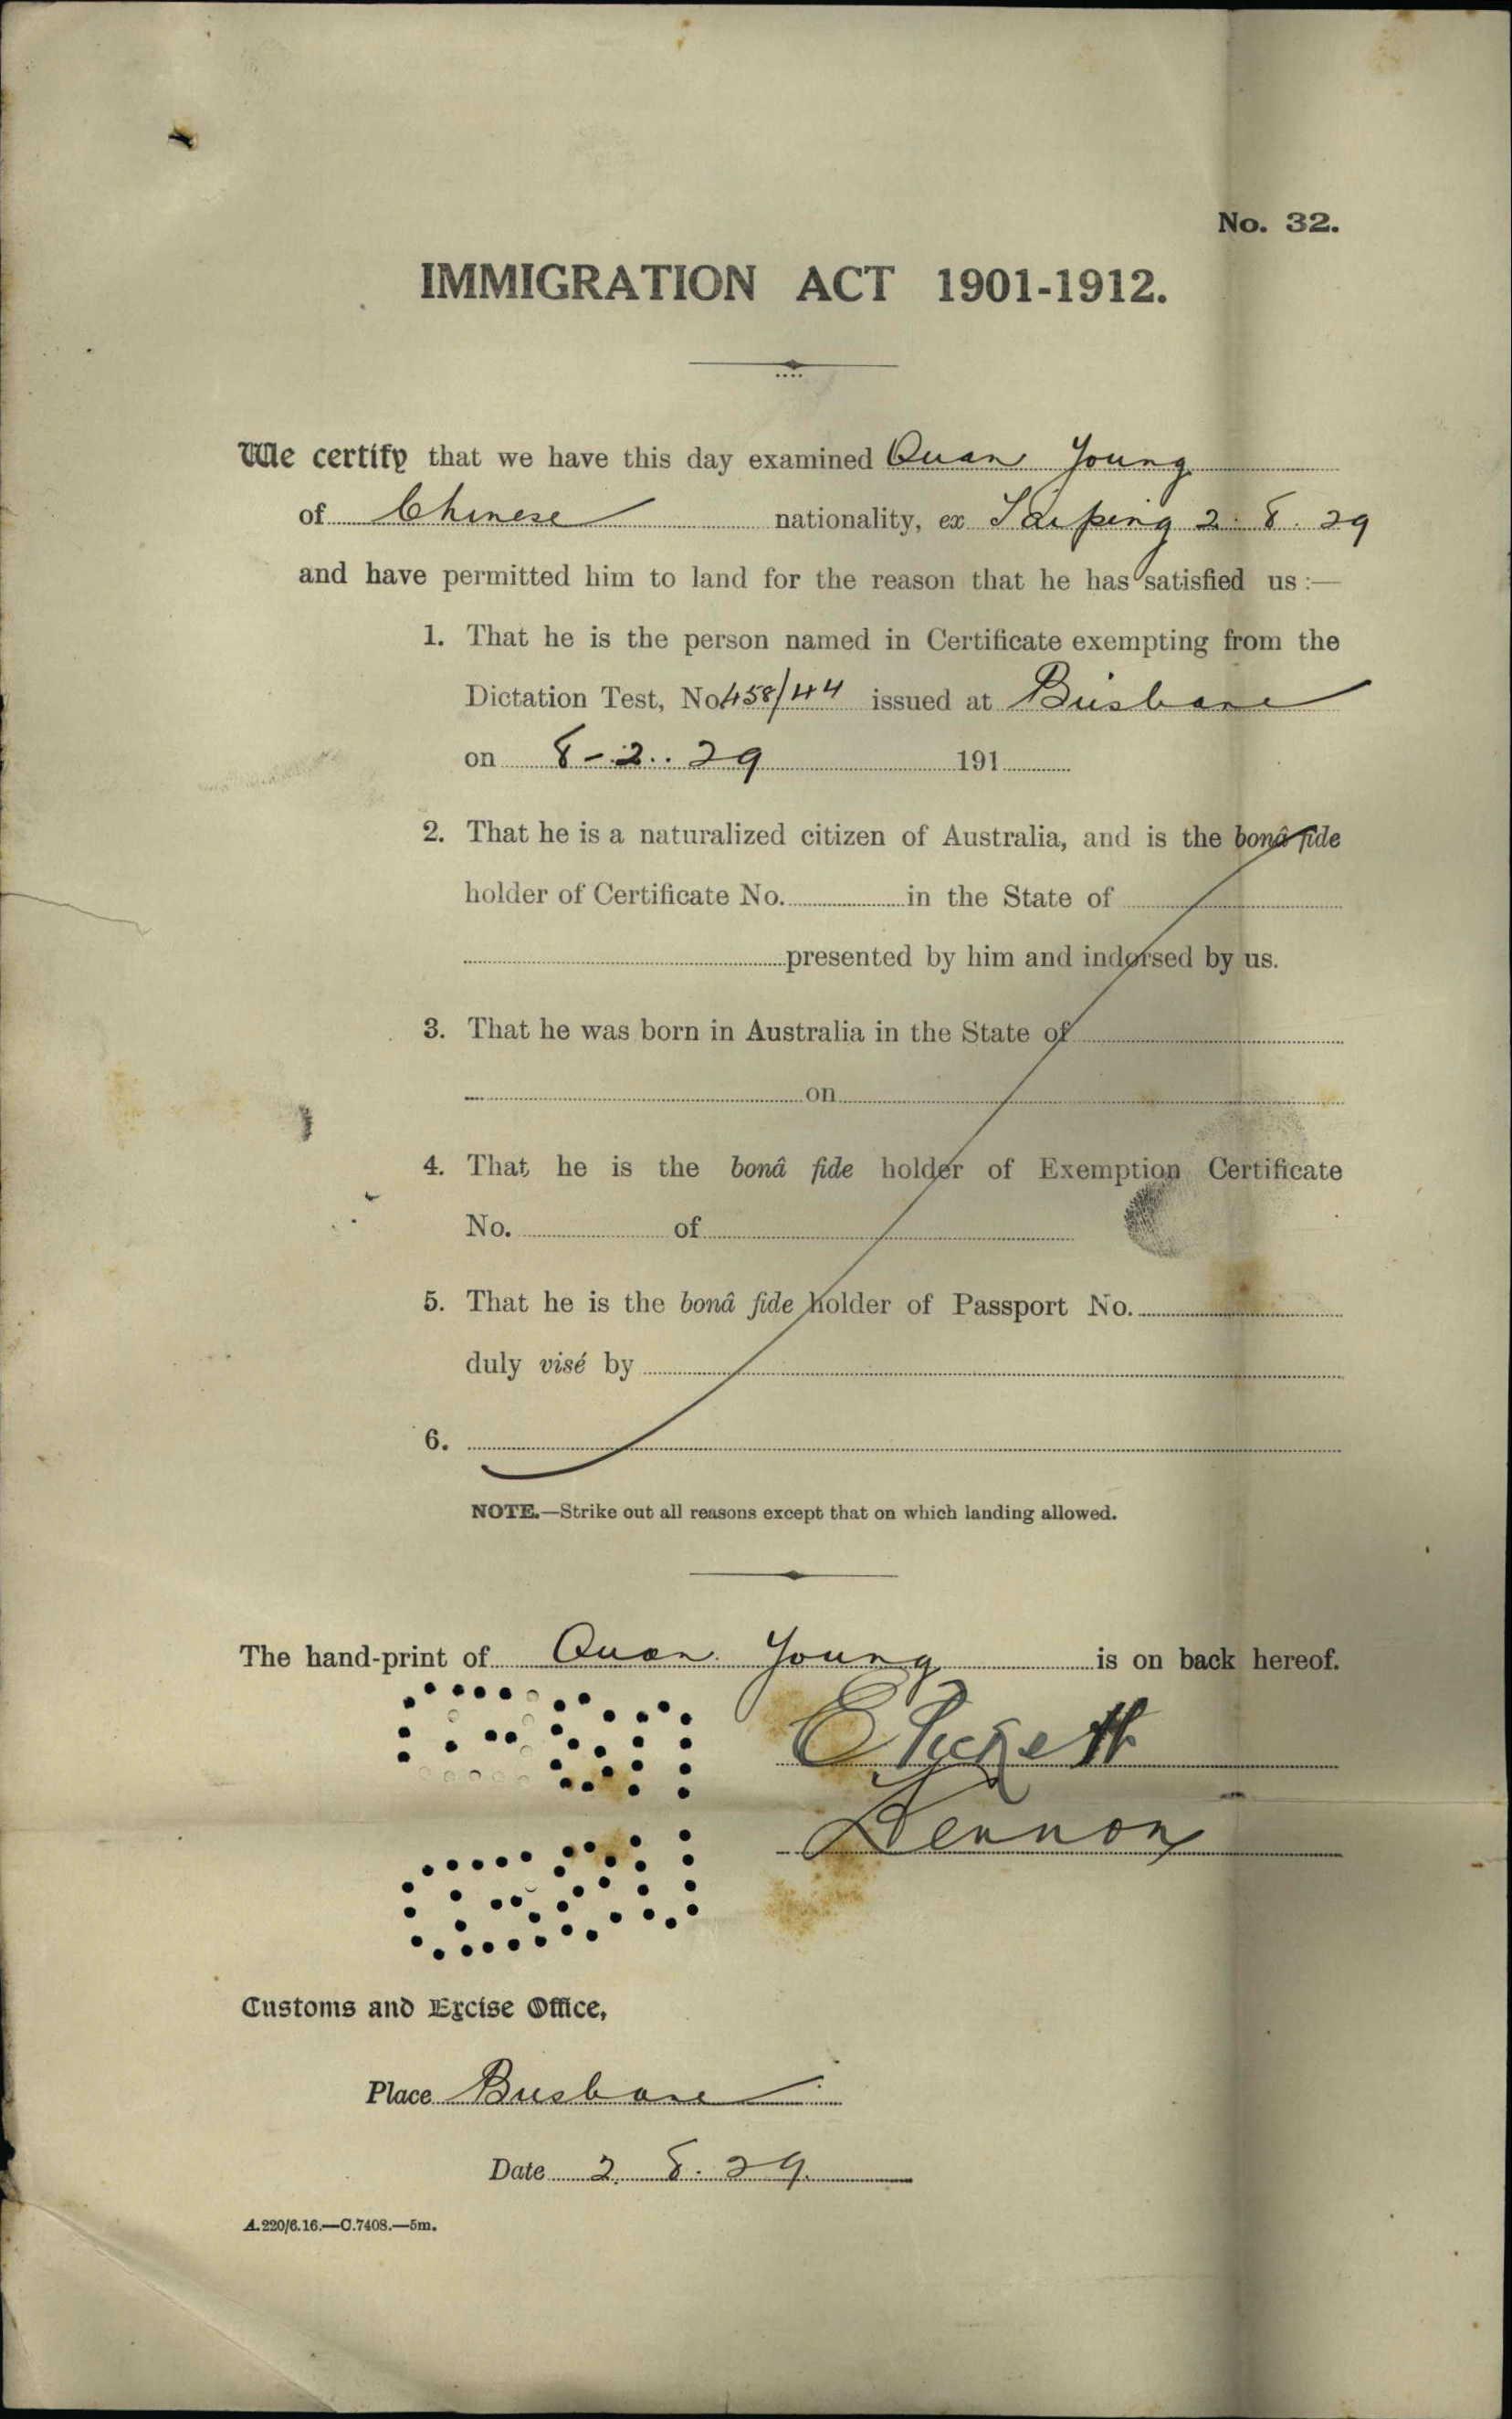 No. 32.
IMMIGRATION ACT 1901-1912.
We certify that we have this day examined Quan Young
of Chinese nationality, ex Taiping 2. 8. 29
and have permitted him to land for the reason that he has satisfied us :—
1. That he is the person named in Certificate exempting from the
Dictation Test, No 458/44 issued at Brisbane
on 8-2.. 29 191
2. That he is a naturalized citizen of Australia, and is the bonâ fide
holder of Certificate No. in the State of
presented by him and indorsed by us.
3. That he was born in Australia in the State of
on
4. That he is the bonâ fide holder of Exemption Certificate
No. of
5. That he is the bonâ fide holder of Passport No.
duly visé by
6.
NOTE.—Strike out all reasons except that on which landing allowed.
The hand-print of Quan Young is on back hereof.
E Pickett
Lennon
Customs and Excise Office,
Place Brisbane
Date 2. 8. 29.
A.220/6.16.—C.7408.—5m.